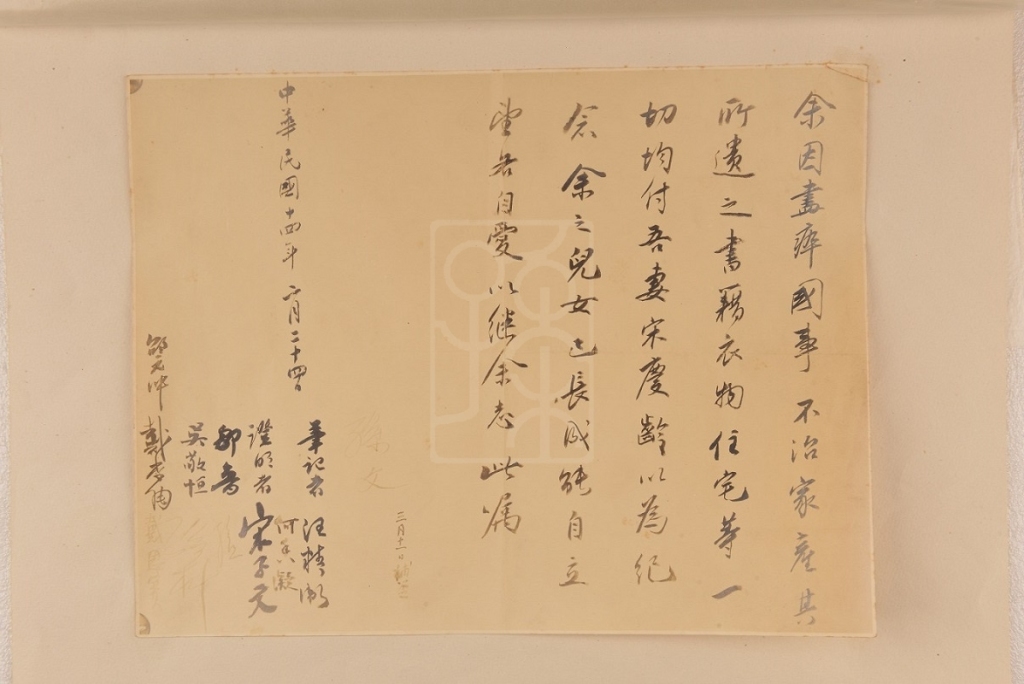 余因盡瘁國事不治家產其
所遺之書籍衣物住宅等一
切均付吾妻宋慶齡以為紀
念余之兒女已長成能自立
望各自愛以繼余志此囑
三月十一日補簽
孫文
中華民國十四年二月二十四日
筆記者 汪精衛
何香凝
證明者 宋子文
鄒魯
孔祥熙
吳敬恒
孫科
邵元冲
戴季陶
戴恩賽